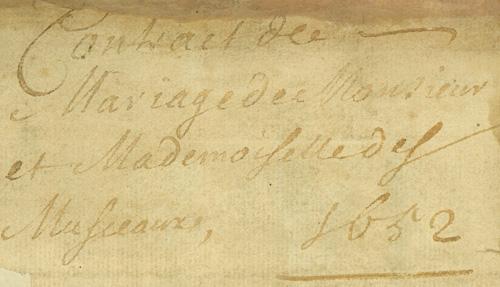 Contract de
Mariage de Monsieur
et Mademoiselle des
Musseaux, 1652